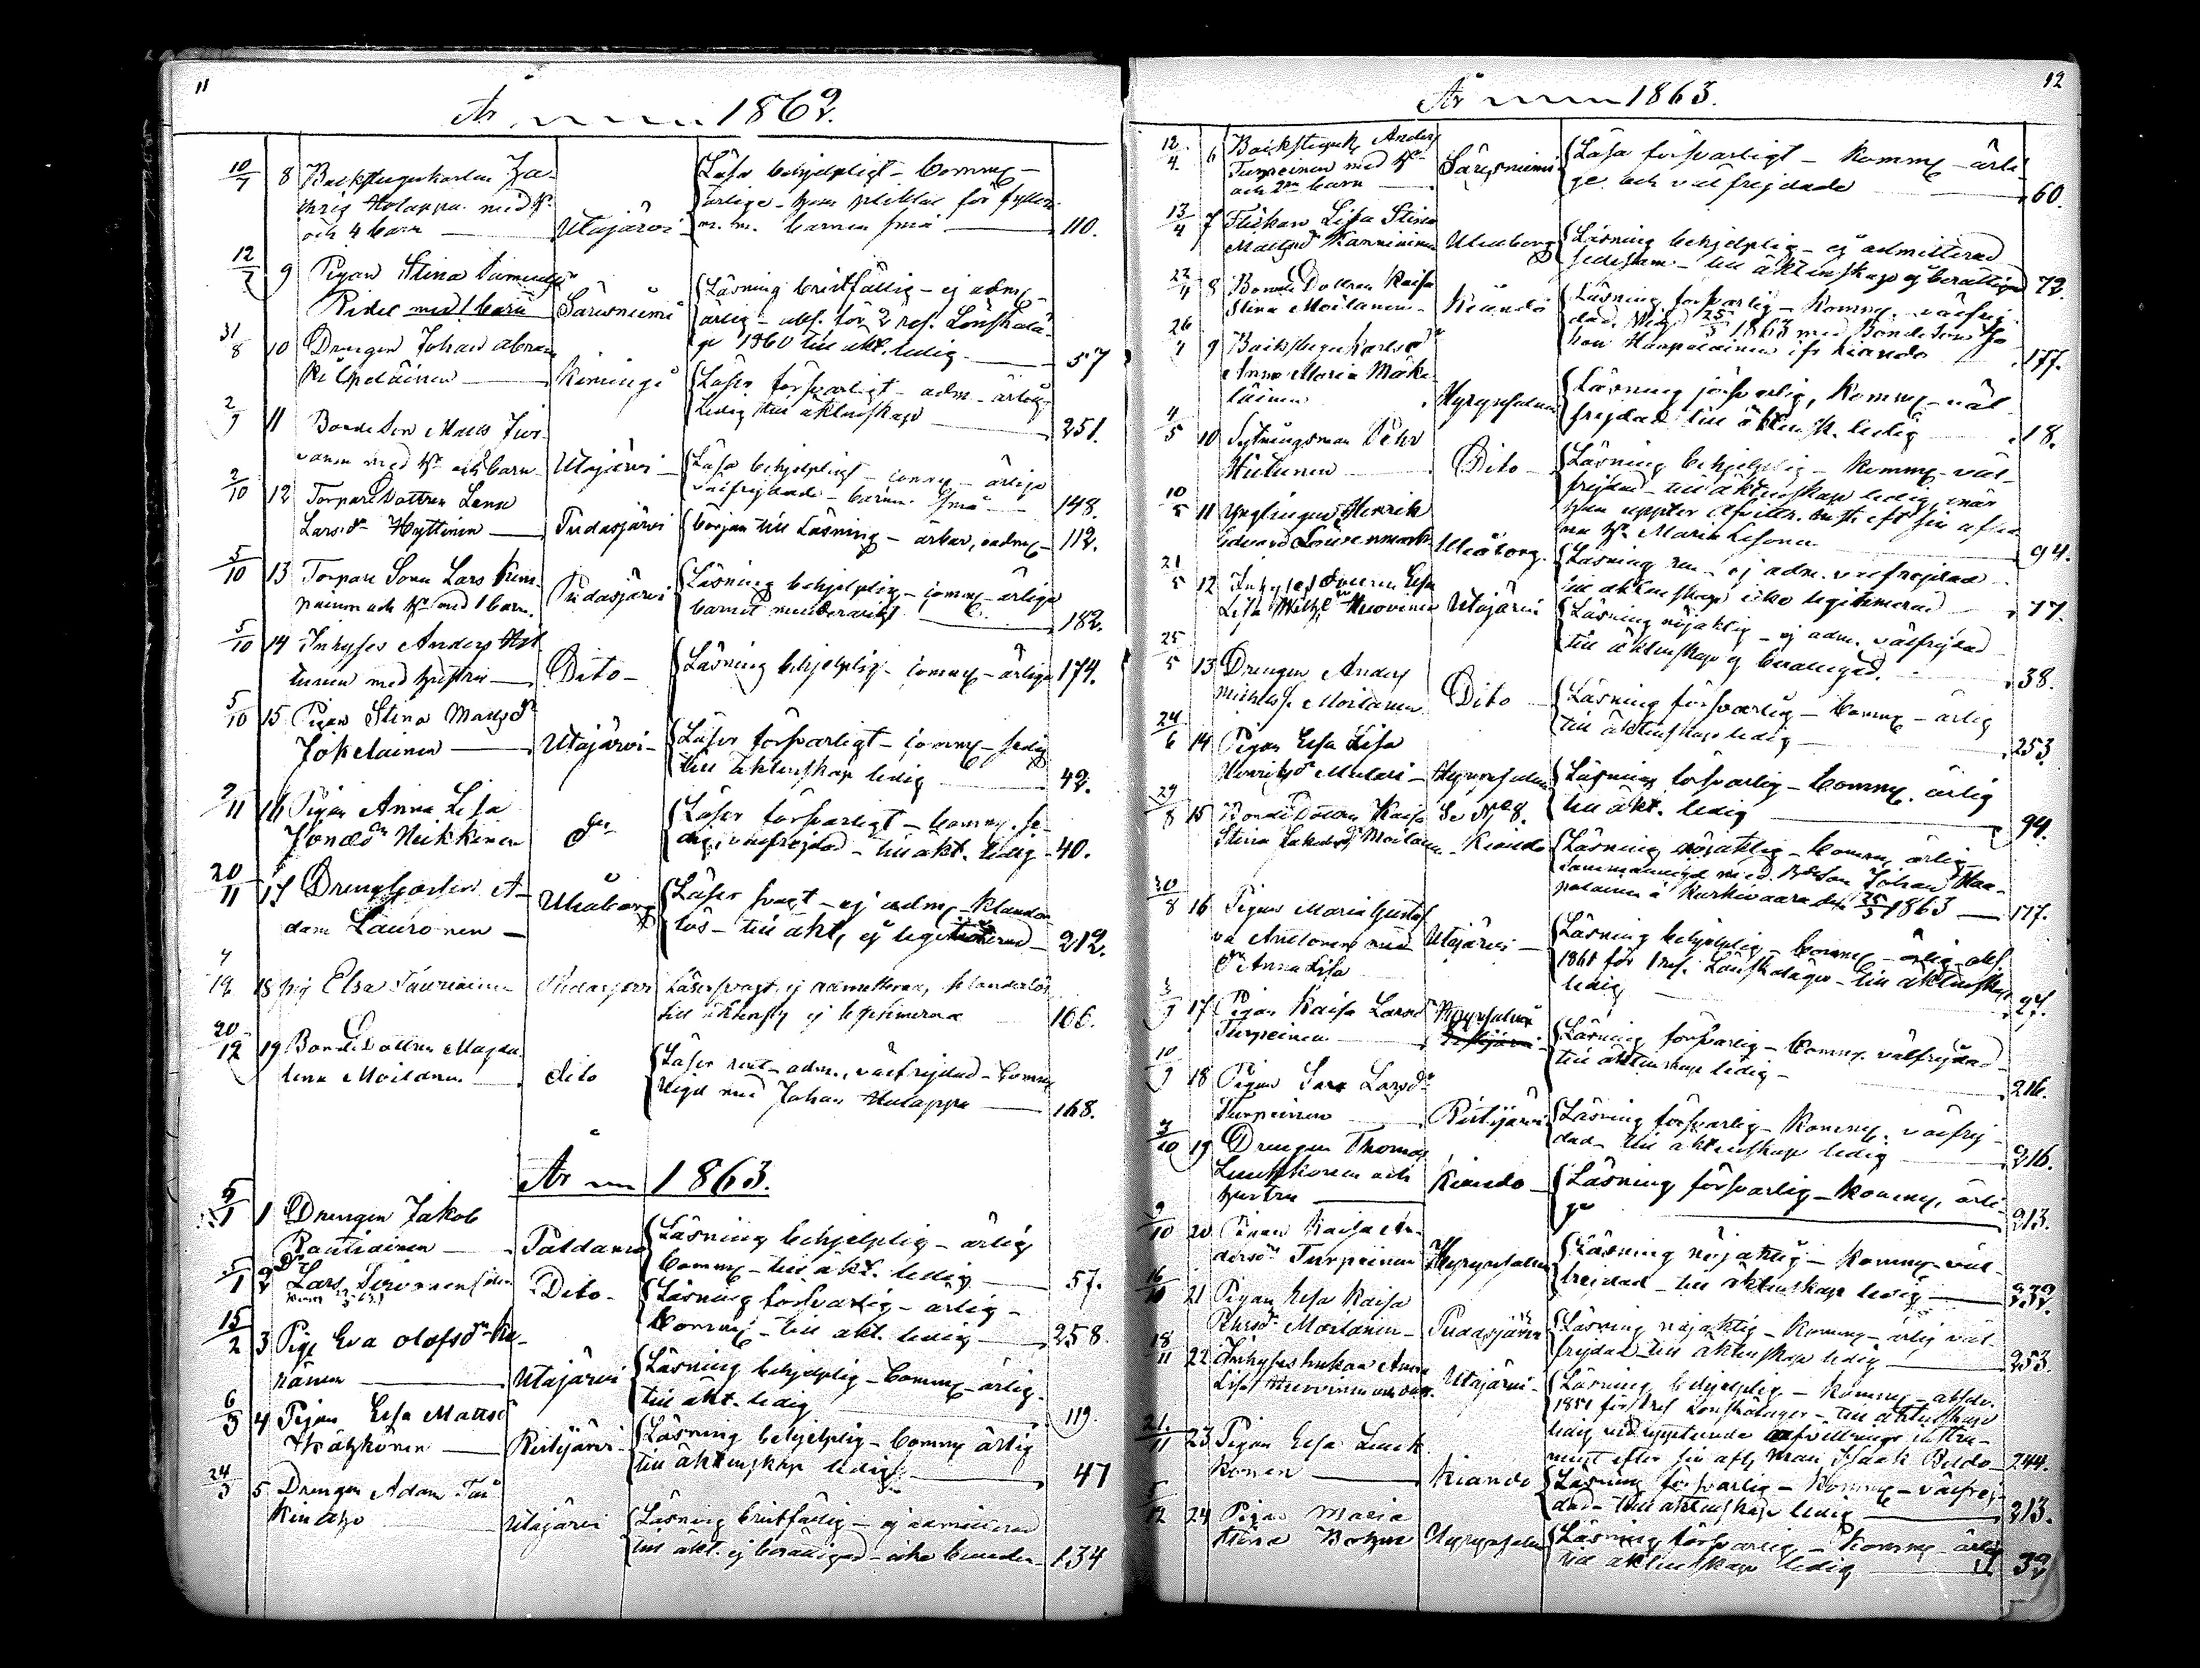 11
År 1862.
10/7 8 Backstugukarlen Za-
chris Holappa med h.
och 4 barn Utajärvi
Läsa behjelpligt - comm. -
ärlige - han pliktat för fylleri
m. m. barnen små 110.
12/7 9 Pigan Stina
med 1 barn Säresniemi
Läsning bristfällig - ej adm. -
ärlig - abs. för 2 res. Lönskalä-
ge 1860 till äkt. ledig 57
31/8 10 Drengen Johan Abram
Kilpeläinen Kiminge
Läser försvarligt - adm. - ärlig
Ledig till äktenskap 251.
2/9 11 Bonde Son Matts
med h. och barn Utajärvi
Läsa behjelpligt - comm. - ärliga
välfrejdade - barnen små 148.
2/10 12 Torpare Dottren Lena
Larsdr Hyttinen Pudasjärvi
börjar till Läsning - ärbar, oadm. 112.
5/10 13 Torpare Sonen Lars
och h. med 1 barn. Pudasjärvi
Läsning behjelplig - comm. - ärliga
barnet minderårigt 182.
5/10 14 Inhyses Anders
med hustru Dito
Läsning behjelplig - comm. - ärliga 174.
5/10 15 Pigan Stina Mattsdr
Jokelainen Utajärvi
Läser försvarligt - comm. - sedig
till äktenskap ledig 42.
2/11 16 Pigan Anna Lisa
Heikkinen do
Läser försvarligt - comm. se-
dig, välfrejdad - till äkt. ledig 40.
20/11 17 Drenggossen A-
dam Lauronen Uleåborg
Läser svagt - ej adm. - klander-
lös - till äkt. ej legitimerad 212.
4/12 18 pig Elsa Tauriainen Pudasjärvi
Läser svagt, ej admitterad, klanderlös
till äktensk. ej legitimerad 166.
20/12 19 Bonde Dottren Magda-
lena Moilanen dito
Läser rent - adm., välfrejdad - comm.
Vigd med Johan Holappa 168.
År 1863.
5/1 1 Drengen Jakob
Rautiainen Paldamo
Läsning behjelplig - ärlig
comm. - till äkt. ledig 57.
5/1 2 Dr Lars Sironen
Dito
Läsning försvarlig - ärlig -
comm. - till äkt. ledig 258.
15/2 3 Pig. Eva Olofsdr Ka-
nänen Utajärvi
Läsning behjelplig - comm. - ärlig.
till äkt. ledig 119.
6/3 4 Pigan Elsa Mattsdr
Ristijärvi
Läsning behjelplig - comm. ärlig
till äktenskap ledig 47
24/3 5 Drengen Adam
Utajärvi
Läsning bristfällig - ej admitterad
till äkt. ej berättigad 134
12
År 1863.
12/4 6 Backstuguk. Anders
Turpeinen med h.
och barn Säresniemi
Läsa försvarligt - komm. - ärli-
ge och välfrejdade 60.
13/4 7 Flickan Lisa Stina
Mattsdr Karvinen Uleåborg
Läsning behjelplig - ej admitterad
sedesam - till äktenskap ej berättigad 72.
22/4 8 Bonde Dottren Kaisa
Stina Moilanen Kiando
Läsning försvarlig - komm. - välfrej-
dad. Vigd 25/5 1863 med Bondeson Jo-
han Haapalainen ifr. Kiando 177.
26/4 9 Backstugukarlsdr
Anna Maria Mäke-
läinen Hyrynsalmi
Läsning försvarlig, komm. - väl-
frejdad till äktensk. ledig 18.
4/5 10 Sytningsman Pehr
Dito
Läsning behjelplig - komm. - väl-
frejdad - till äktenskap ledig, när
han uppter afvittr. inst. eft. sin afl.
na h. Maria 94.
10/5 11 Ynglingen Henrik
Edvard Uleåborg.
Läsning ren - ej adm. välfrejdad
till äktenskap icke legitimerad 77.
21/5 12 Inhyses dottren Elsa
Lisa Utajärvi
Läsning nöjaktig - ej adm. välfrejdad
till äktenskap ej berättigad. 38.
25/5 13 Drengen Anders
Michelss. Moilanen Dito
Läsning försvarlig - comm. - ärlig
till äktenskap ledig 253.
24/6 14 Pigan Elsa Lisa
Henriksdr Mulari Hyrynsalmi
Läsning försvarlig - comm. ärlig
till äkt. ledig 94.
29/8 15 Bonde Dottren Kaisa Se N:o 8.
Stina Jakobsdr Moilanen Kiando
Läsning nöjaktig - comm. ärlig
Sammanvigd med B. Son Johan Haa-
palainen å Kurkivaara den 25/5 1863 177.
30/8 16 Pigan Maria Gusta-
va Anttonen med
dr Anna Lisa Utajärvi
Läsning behjelplig - comm. - ärlig, abs.
1861 för 1 res. Lönskaläger - till äktenskap
ledig 27.
3/9 17 Pigan Kaisa Larsdr
Turpeinen Hyrynsalmi
Läsning försvarlig - comm. välfrejdad
till äktenskap ledig 216.
10/9 18 Pigan Sara Larsdr
Turpeinen Ristijärvi
Läsning försvarlig - komm. välfrej-
dad - till äktenskap ledig 216.
3/10 19 Drengen Thomas
Leinkkonen och
hustru Kiando
Läsning försvarlig - komm. ärli-
ge 213.
9/10 20 Pigan Kaisa An-
dersdr Turpeinen Hyrynsalmi
Läsning nöjaktig - komm. väl-
frejdad - till äktenskap ledig 232.
16/10 21 Pigan Elsa Kaisa
Pehrsdr Moilanen Pudasjärvi
Läsning nöjaktig - komm. - ärlig väl-
frejdad till äktenskap ledig 253.
18/11 22 Inhyseshustrun Anna
Lisa Utajärvi
Läsning behjelplig - komm. - absolv.
1851 för 1 res. Lönskaläger - till äktenskap
ledig vid uppteende afvittrings instru-
ment efter sin afl. man Isaak 244.
21/11 23 Pigan Elsa Leink-
konen Kiando
Läsning försvarlig - komm. - välfrej-
dad - till äktenskap ledig 213.
5/12 24 Pigan Maria
Stina Hyrynsalmi
Läsning försvarlig - komm. - ärlig
till äktenskap ledig 32